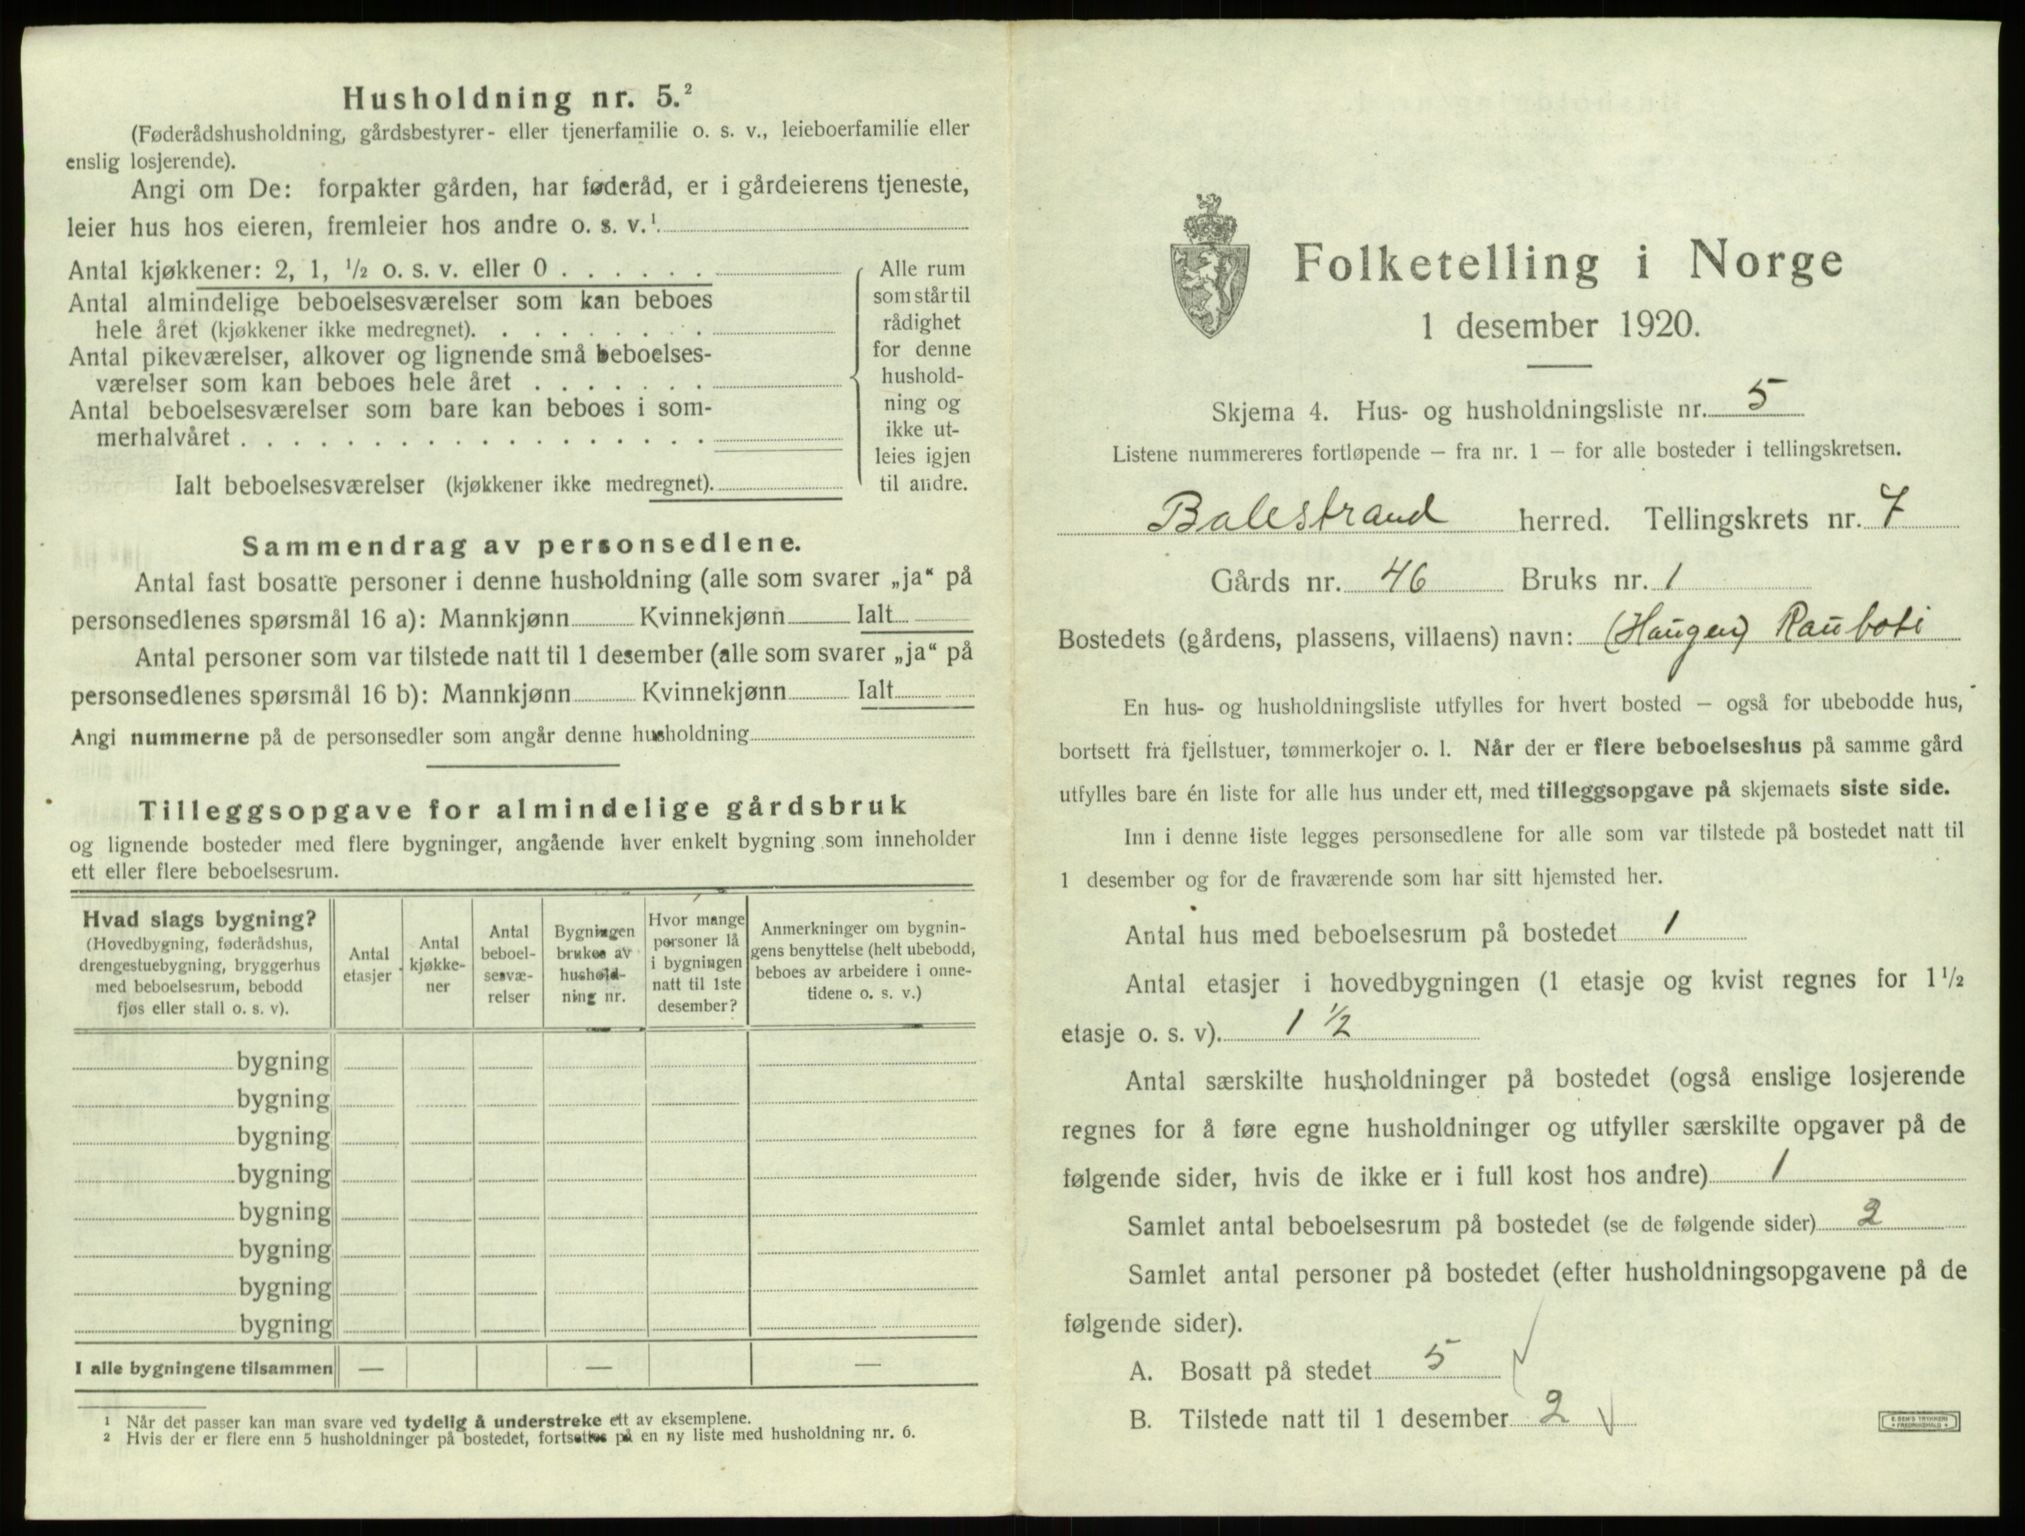 Husholdning nr. 5.²
(Føderådshusholdning, gårdsbestyrer- eller tjenerfamilie o. s. v., leieboerfamilie eller
enslig losjerende).
Angi om De: forpakter gården, har føderåd, er i gårdeierens tjeneste,
leier hus hos eieren, fremleier hos andre o. s. v.¹
Antal kjøkkener: 2, 1, ½ o. s. v. eller 0
Antal almindelige beboelsesværelser som kan beboes
hele året (kjøkkener ikke medregnet).
Antal pikeværelser, alkover og lignende små beboelses-
værelser som kan beboes hele året
Antal beboelsesværelser som bare kan beboes i som-
merhalvåret
Ialt beboelsesværelser (kjøkkener ikke medregnet).
Alle rum
som står til
rådighet
for denne
hushold-
ning og
ikke ut-
leies igjen
til andre.
Sammendrag av personsedlene.
Antal fast bosatte personer i denne husholdning (alle som svarer „ja“ på
personsedlenes spørsmål 16 a): Mannkjønn Kvinnekjønn Ialt
Antal personer som var tilstede natt til 1 desember (alle som svarer „ja“ på
personsedlenes spørsmål 16 b): Mannkjønn Kvinnekjønn Ialt
Angi nummerne på de personsedler som angår denne husholdning
Tilleggsopgave for almindelige gårdsbruk
og lignende bosteder med flere bygninger, angående hver enkelt bygning som inneholder
ett eller flere beboelsesrum.
Hvad slags bygning?
(Hovedbygning, føderådshus,
drengestuebygning, bryggerhus
med beboelsesrum, bebodd
fjøs eller stall o. s. v).
Antal
etasjer
Antal
kjøkke-
ner
Antal
beboel-
sesvæ-
relser
Bygningen
brukes av
hushold-
ning nr.
Hvor mange
personer lå
i bygningen
natt til 1ste
desember?
Anmerkninger om bygnin-
gens benyttelse (helt ubebodd,
beboes av arbeidere i onne-
tidene o. s. v.)
bygning
bygning
bygning
bygning
bygning
bygning
bygning
bygning
I alle bygningene tilsammen — — —
¹ Når det passer kan man svare ved tydelig å understreke ett av eksemplene.
² Hvis der er flere enn 5 husholdninger på bostedet, fortsettes på en ny liste med husholdning nr. 6.
Folketelling i Norge
1 desember 1920.
Skjema 4. Hus- og husholdningsliste nr. 5
Listene nummereres fortløpende — fra nr. 1 — for alle bosteder i tellingskretsen.
Balestrand herred. Tellingskrets nr. 7
Gårds nr. 46 Bruks nr. 1
Bostedets (gårdens, plassens, villaens) navn: (Haugen) Rauboti
En hus- og husholdningsliste utfylles for hvert bosted — også for ubebodde hus,
bortsett fra fjellstuer, tømmerkojer o. l. Når der er flere beboelseshus på samme gård
utfylles bare én liste for alle hus under ett, med tilleggsopgave på skjemaets siste side.
Inn i denne liste legges personsedlene for alle som var tilstede på bostedet natt til
1 desember og for de fraværende som har sitt hjemsted her.
Antal hus med beboelsesrum på bostedet 1
Antal etasjer i hovedbygningen (1 etasje og kvist regnes for 1½
etasje o. s. v). 1 ½
Antal særskilte husholdninger på bostedet (også enslige losjerende
regnes for å føre egne husholdninger og utfyller særskilte opgaver på de
følgende sider, hvis de ikke er i full kost hos andre) 1
Samlet antal beboelsesrum på bostedet (se de følgende sider) 2
Samlet antal personer på bostedet (efter husholdningsopgavene på de
følgende sider).
A. Bosatt på stedet 5
B. Tilstede natt til 1 desember 2
E. SEM'S TRYKKERI
FREDRIKSHALD